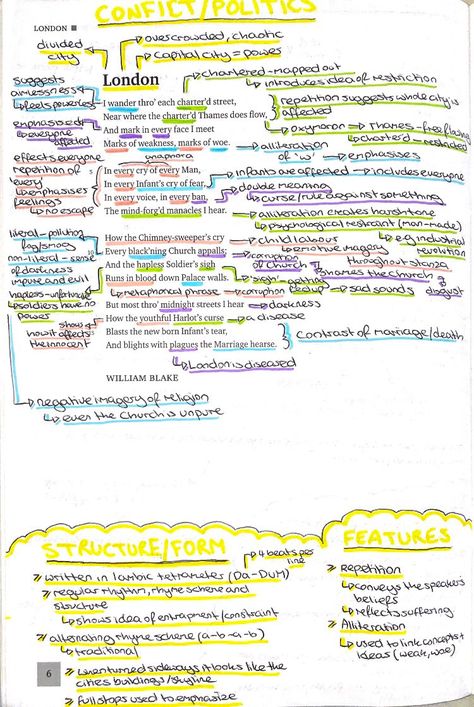 CONFLICT/POLITICS
LONDON
divided city
overcrowded, chaotic
capital city = power
London
chartered - mapped out
introduces idea of restriction
suggests aimlessness
feels powerless
I wander thro' each charter'd street,
Near where the charter'd Thames does flow,
And mark in every face I meet
Marks of weakness, marks of woe.
repetition suggests whole city is affected
oxymoron → Thames - free flowing
charter'd - restricted
emphasised
everyone affected
alliteration of 'w' → emphasises
anaphora
effects everyone
repetition of every
emphasises feelings
no escape
In every cry of every Man,
In every Infant's cry of fear,
In every voice, in every ban,
The mind-forg'd manacles I hear.
infants are affected → includes everyone
double meaning
curse/rule against something
alliteration creates harsh tone
psychological restraint (man-made)
literal - pollution fog/smog
non-literal - sense of darkness
impure and evil
hapless - unfortunate
soldiers have no power
How the Chimney-sweeper's cry
Every black'ning Church appalls;
And the hapless Soldier's sigh
Runs in blood down Palace walls.
child labour
e.g industrial revolution
emotive imagery throughout stanza
corruption of Church
shames the Church
disgust
'sigh' - getting fed up
sad sounds
metaphorical phrase → corruption
But most thro' midnight streets I hear
How the youthful Harlot's curse
Blasts the new born Infant's tear,
And blights with plagues the Marriage hearse.
darkness
a disease
show how it affects the innocent
contrast of marriage/death
London is diseased
WILLIAM BLAKE
negative imagery of religion
even the Church is unpure
STRUCTURE/FORM
4 beats per line
written in Iambic tetrameter (Da-DuM)
regular rhythm, rhyme scheme and structure
shows idea of entrapment/constraint
alternating rhyme scheme (a-b-a-b)
traditional
when turned sideways it looks like the cities buildings/skyline
full stops used to emphasize
FEATURES
Repetition
conveys the speakers beliefs
reflects suffering
Alliteration
used to link concepts + ideas (weak, woe)
6